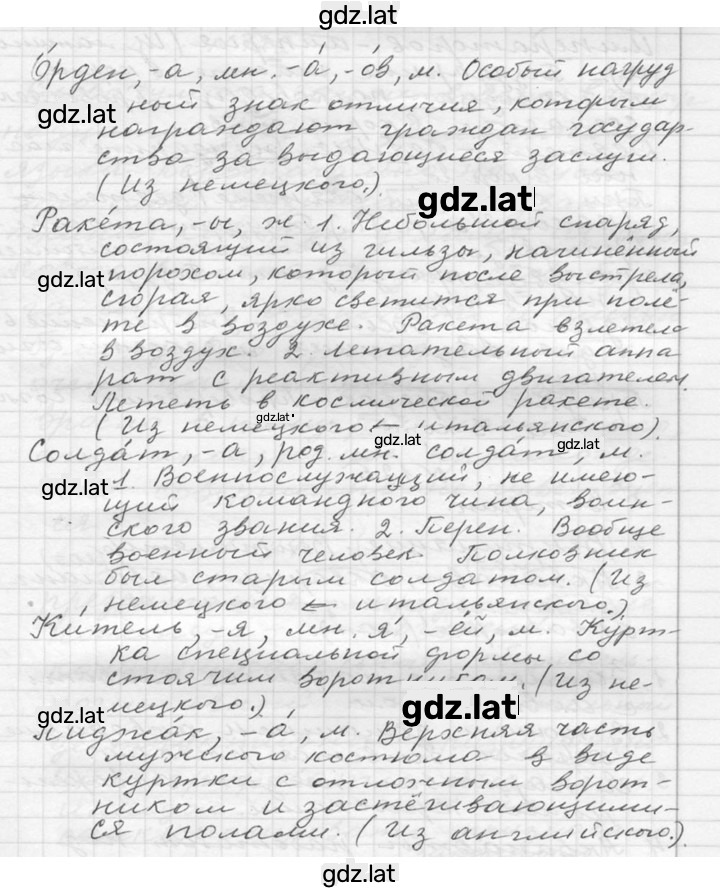 gdz.lat
О́рден, -а, мн. -а́, -о́в, м. Особый нагруд
gdz.lat
ный знак отличия, которым
награждают граждан государ-
ства за выдающиеся заслуги.
(Из немецкого.)
gdz.lat
Раке́та, -ы, ж. 1. Небольшой снаряд,
состоящий из гильзы, начинённый
gdz.lat
порохом, который после выстрела,
сгорая, ярко светится при полё-
те в воздухе. Ракета взлетела
в воздух. 2. Летательный аппа
рат с реактивным двигателем.
Лететь в космической ракете.
gdz.lat
(Из немецкого ← итальянского).
gdz.lat
Солда́т, -а, род. мн. солда́т, м.
gdz.lat
1. Военнослужащий, не имею-
gdz.lat
щий командного чина, воин-
ского звания. 2. Перен. Вообще
военный человек. Полковник
был старым солдатом. (Из
немецкого ← итальянского.)
Ки́тель, -я, мн. я́, -е́й, м. Курт-
ка специальной формы со
стоячим воротником. (Из не-
мецкого.)
gdz.lat
gdz.lat
Пиджа́к, -а́, м. Верхняя часть
мужского костюма в виде
куртки с отложным ворот-
ником и застёгивающими-
ся полами. (Из английского.)
gdz.lat